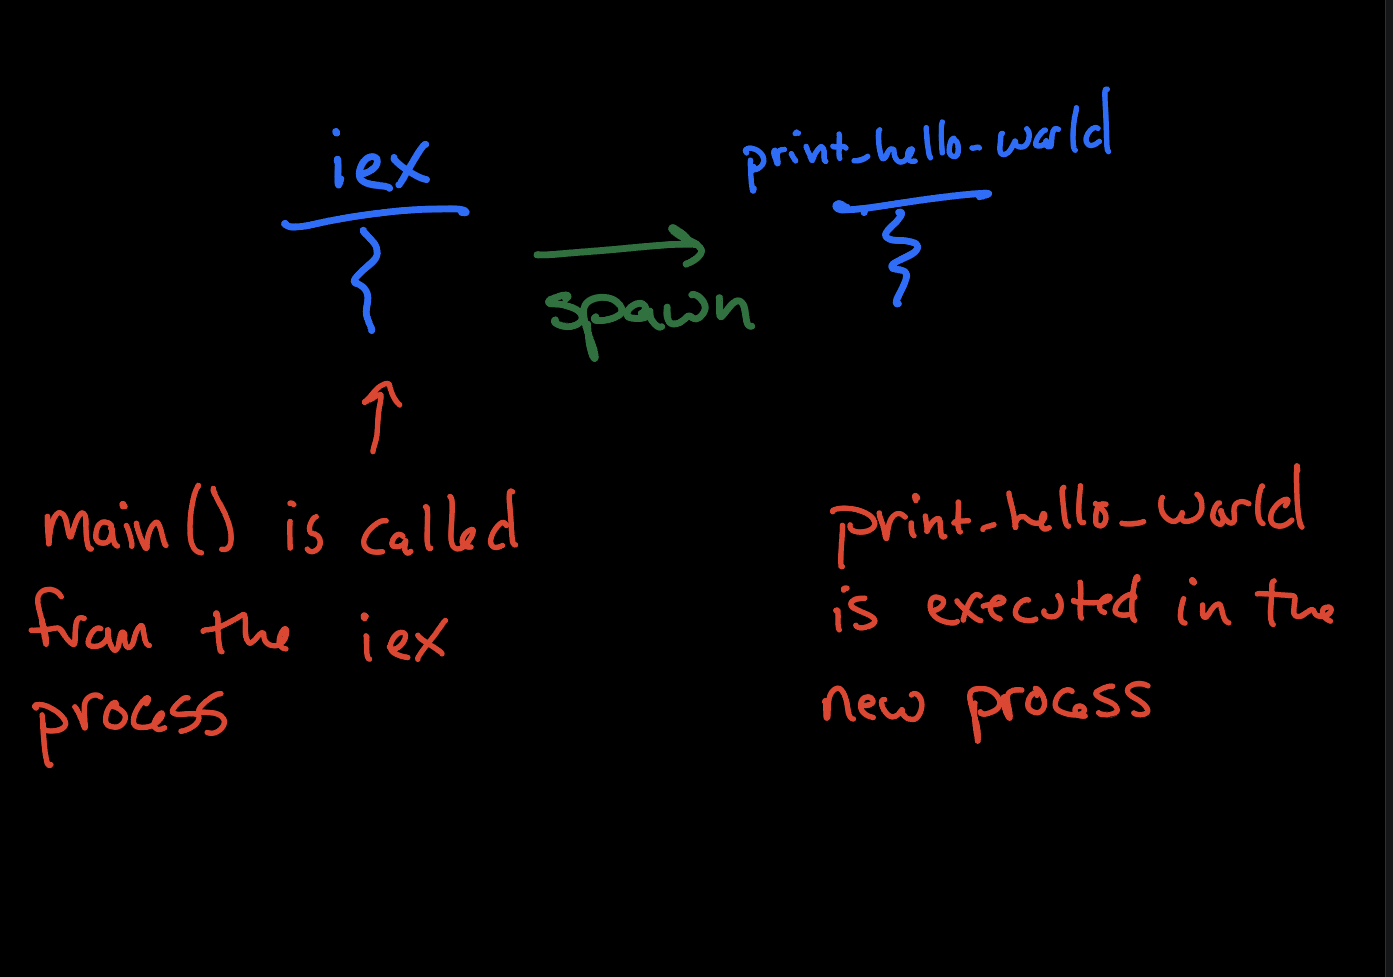 iex
print_hello_world
spawn
main() is called
from the iex
process
print_hello_world
is executed in the
new process